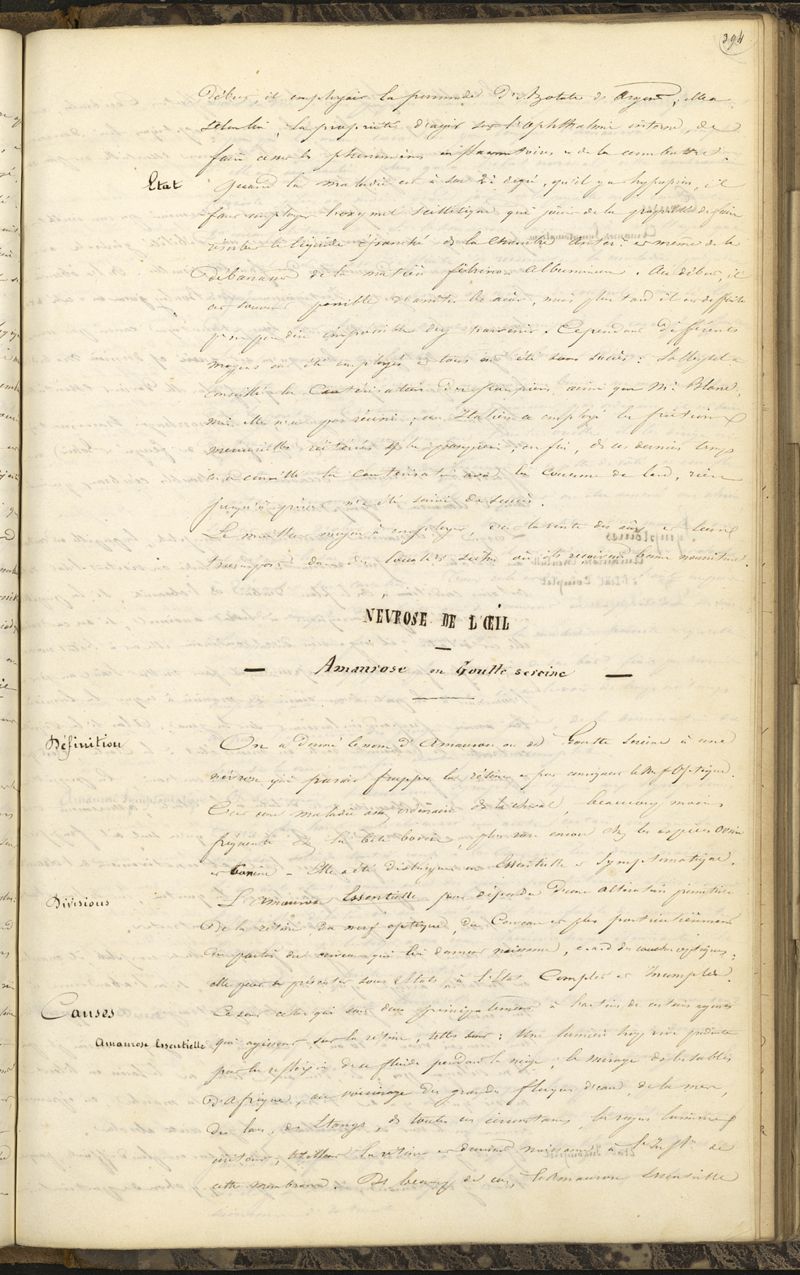 394
Début, il employait la pommade d'Azotate de Argent, elle a
la propriété d'agir sur l'ophthalmie interne, de
faire cesser les phénomènes inflammatoires et de la combattre.
Etat
Quand la maladie est à son 2e degré, qu'il y a hypopion, il
faut employer l'oxymel scillitique qui jouit de la propriété de faire
rentrer le liquide épanché de la chambre antér: et même de la
débarrasser de la matière fibrino albumineuse. Au début, il
est souvent possible d'arrêter les accès, mais plus tard il est difficile
pour ne pas dire impossible d'y parvenir. Cependant différents
moyens ont été employés et tous ont été sans succès:
conseille la Cautérisation des paupières ainsi que Mr Blanc,
mais elle n'a pas réussi, en Italie on a employé les frictions
mercurielles réitérées sur les paupières; enfin, de ces derniers temps
on a conseillé la cautérisation avec la couenne de lard, rien
jusqu'à présent n'a été suivi de succès.
Le meilleur moyen à employer, c'est la vente des et leur
transport dans des localités sèches où ils reçoivent bonne nourriture.
NEVROSE DE L'ŒIL
Amaurose ou Goutte sereine
Définition
On a donné le nom d'Amaurose ou de Goutte sereine à une
névrose qui paraît frapper la rétine et par conséquent le nerf Optique.
C'est une maladie assez ordinaire de le cheval, beaucoup moins
fréquente chez la bête bovine, plus rare encore chez les espèces Ovine
et Canine. Elle a été distinguée en Essentielle et Symptomatique.
Divisions
L'Amaurose Essentielle peut dépendre d'une altération primitive
de la rétine, du nerf optique, du Cerveau et plus particulièrement
des parties du cerveau qui lui donnent naissance, c.a.d. des couches optiques,
elle peut se présenter sous 2 Etats, à l'Etat Complet et Incomplet.
Causes
Amaurose Essentielle
Ce sont celles qui sont dues principalement à l'action de certains agents
qui agissent sur la rétine, telles sont: Une lumière trop vive produite
par la réflexion de ce fluide pendant la neige, le mirage des sables
d'Afrique, au voisinage des grandes flaques d'eau, de la mer,
des lacs, des Etangs, de toutes ces circonstances, les rayons lumineux
la rétine et donnent naissance à de
cette membrane. Dans beaucoup de cas, l'Amaurose Essentielle